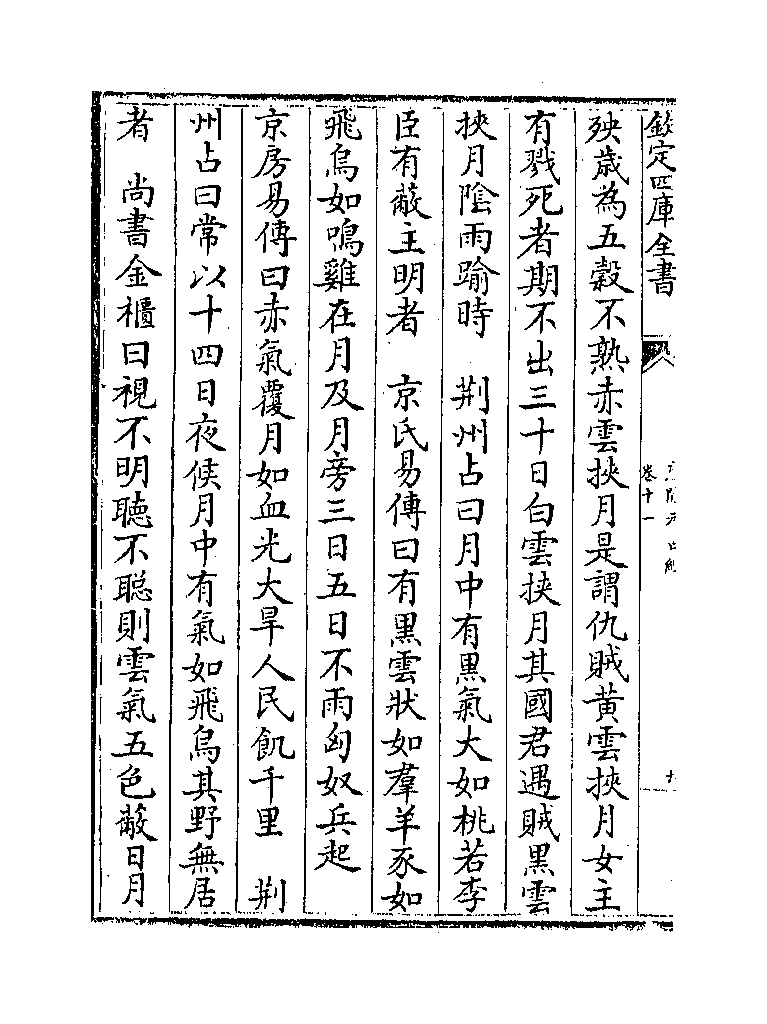 欽定四庫全書
卷十一
殃歲為五穀不熟赤雲挾月是謂仇賊黃雲挾月女主
有戮死者期不出三十日白雲挾月其國君遇賊黒雲
挾月隂雨踰時　荆州占曰月中有黒氣大如桃若李
臣有蔽主明者　京氏易傳曰有黒雲狀如羣羊豕如
飛鳥如鳴雞在月及月旁三日五日不雨匈奴兵起
京房易傳曰赤氣覆月如血光大旱人民飢千里　荆
州占曰常以十四日夜候月中有氣如飛鳥其野無居
者　尚書金櫃曰視不明聴不聡則雲氣五色蔽日月